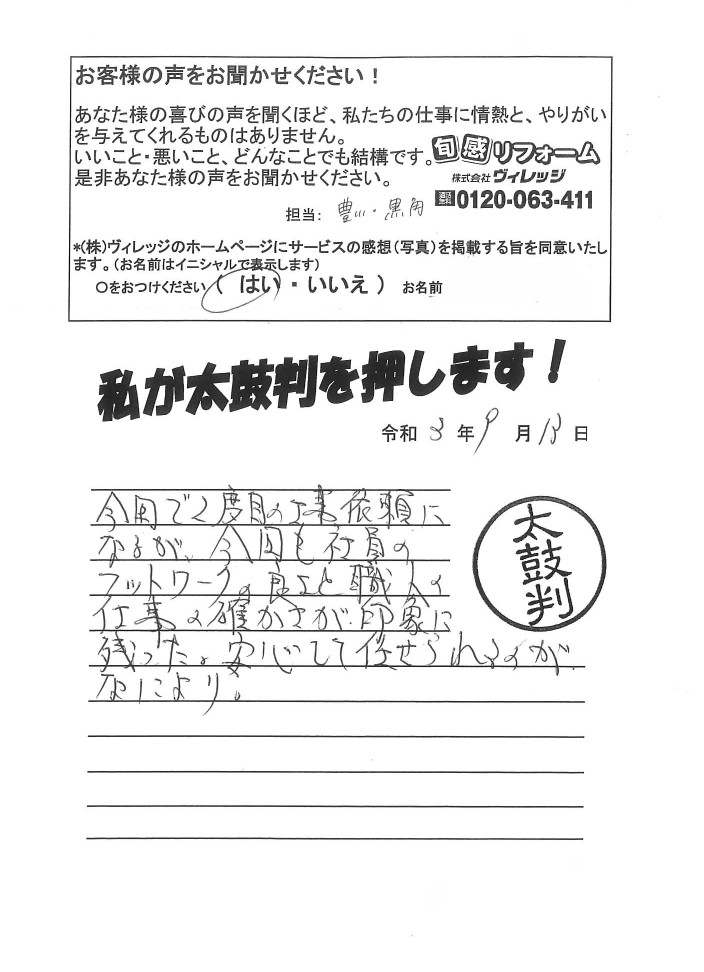 お客様の声をお聞かせください！
あなた様の喜びの声を聞くほど、私たちの仕事に情熱と、やりがい
を与えてくれるものはありません。
いいこと・悪いこと、どんなことでも結構です。
是非あなた様の声をお聞かせください。
旬感リフォーム
株式会社ヴィレッジ
0120-063-411
担当: 豊川・黒角
*(株)ヴィレッジのホームページにサービスの感想(写真)を掲載する旨を同意いたし
ます。(お名前はイニシャルで表示します)
○をおつけください ( はい ・ いいえ ) お名前
私が太鼓判を押します！
令和 3 年 9 月 13 日
今回で2度目の工事依頼に
なるが、今回も社員の
フットワークの良さと職人の
仕事の確かさが印象に
残った。安心して任せられるのが
なにより。
太鼓判